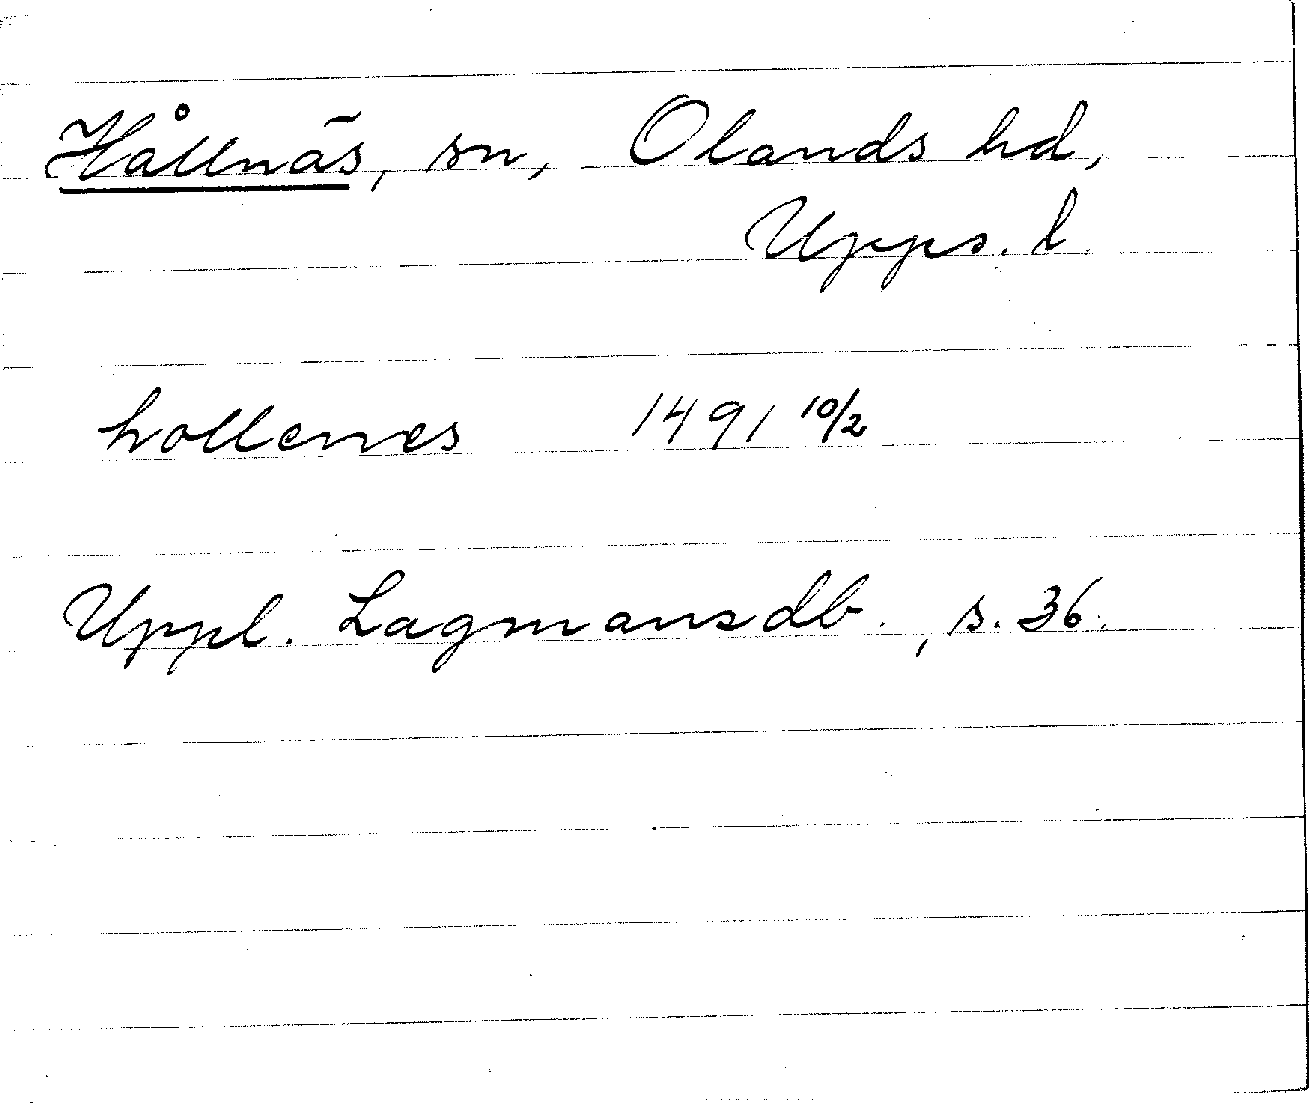 Hållnäs, sn, Olands hd,
Upps. l.
hollenes 1491 10/2
Uppl. Lagmansdb., s. 36.